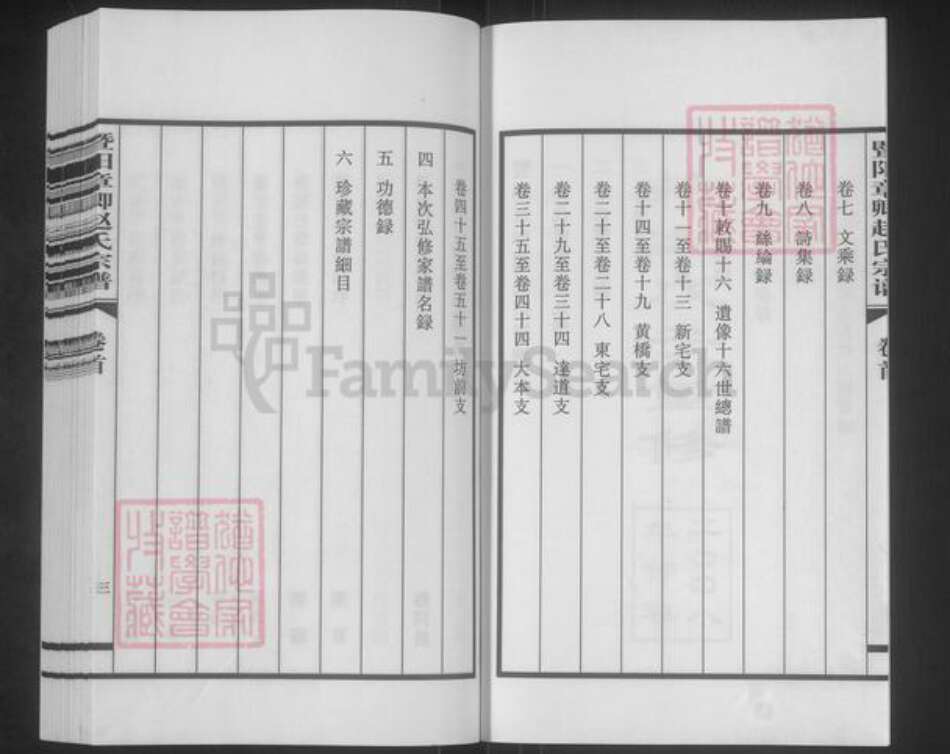 暨陽章卿赵氏宗谱
卷首
卷七　文乘録
卷八　詩集録
卷九　絲綸録
卷十敕賜十六　遺像十六世總譜
卷十一至卷十三　新宅支
卷十四至卷十九　黄橋支
卷二十至卷二十八　東宅支
卷二十九至卷三十四　達道支
卷三十五至卷四十四　大本支
卷四十五至卷五十一　坊前支
四　本次弘修家譜名録
五　功德録
六　珍藏宗譜細目
暨阳章卿赵氏宗譜
卷首
三
FamilySearch